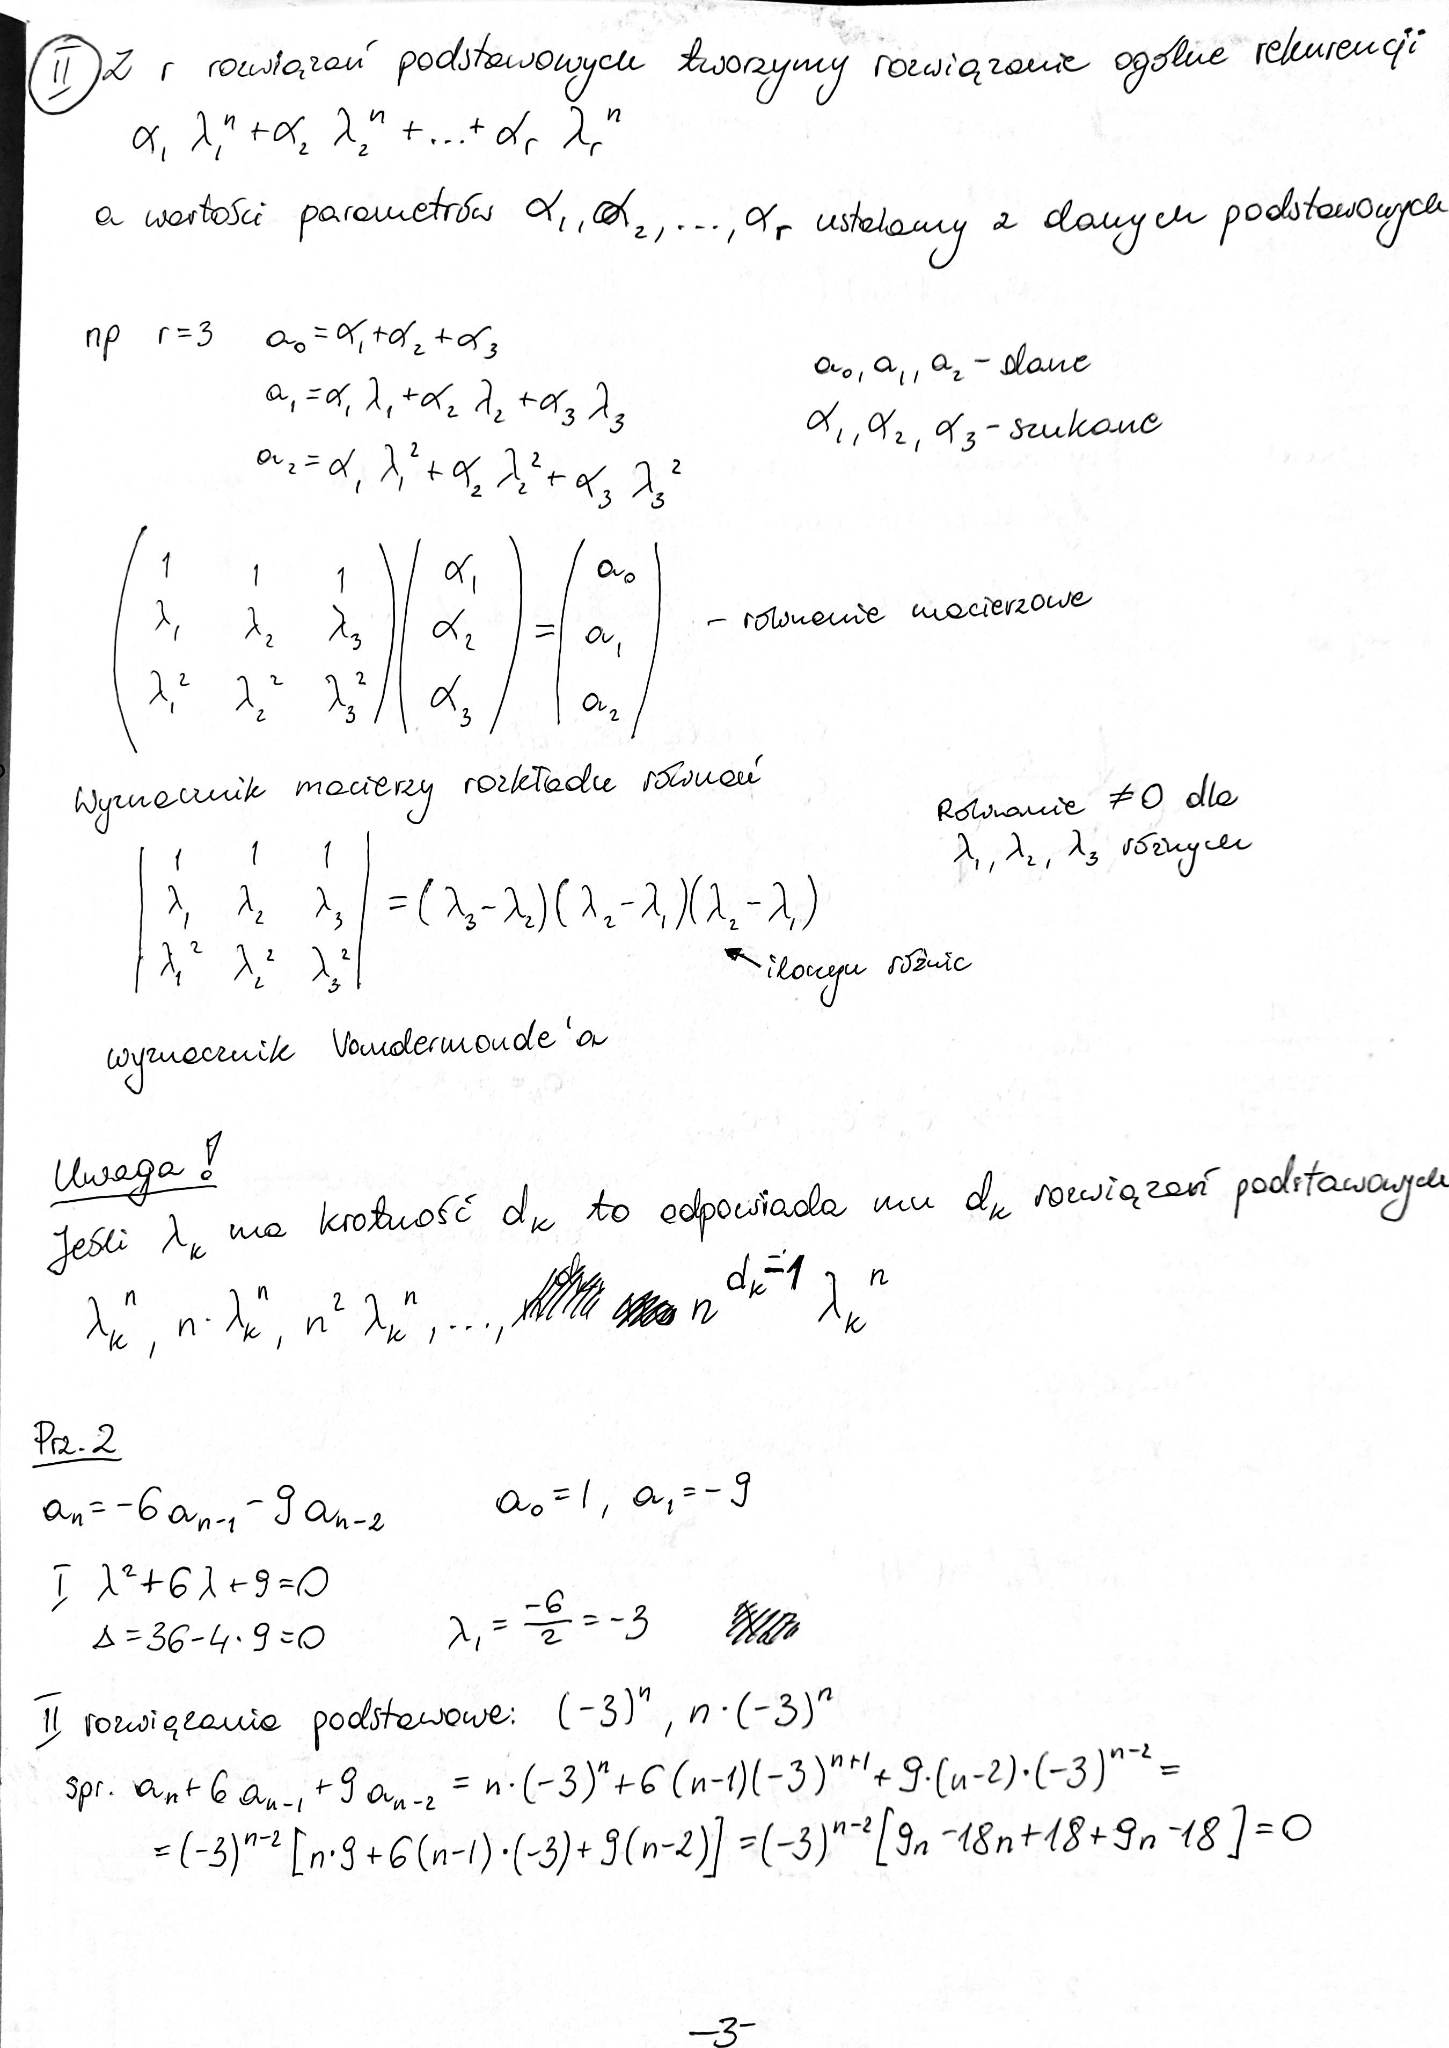 II Z r rozwiązań podstawowych tworzymy rozwiązanie ogólne rekurencji
α₁ λ₁ⁿ + α₂ λ₂ⁿ + ... + αᵣ λᵣⁿ
a wartości parametrów α₁, α₂, ..., αᵣ ustalamy z danych podstawowych
np r=3 a₀ = α₁ + α₂ + α₃
a₁ = α₁ λ₁ + α₂ λ₂ + α₃ λ₃
a₂ = α₁ λ₁² + α₂ λ₂² + α₃ λ₃²
a₀, a₁, a₂ - dane
α₁, α₂, α₃ - szukane
( 1 1 1 ) ( α₁ ) = ( a₀ )
( λ₁ λ₂ λ₃ ) ( α₂ ) = ( a₁ ) - równanie macierzowe
( λ₁² λ₂² λ₃² ) ( α₃ ) = ( a₂ )
Wyznacznik macierzy rozkładu równań
Równanie ≠ 0 dla
λ₁, λ₂, λ₃ różnych
| 1 1 1 |
| λ₁ λ₂ λ₃ | = (λ₃ - λ₂)(λ₂ - λ₁)(λ₂ - λ₁)
| λ₁² λ₂² λ₃² |
iloczyn różnic
wyznacznik Vandermonde'a
Uwaga!
Jeśli λₖ ma krotność dₖ to odpowiada mu dₖ rozwiązań podstawowych
λₖⁿ, n·λₖⁿ, n² λₖⁿ, ..., n^(dₖ-1) λₖⁿ
Prz. 2
aₙ = -6aₙ₋₁ - 9aₙ₋₂ a₀ = 1, a₁ = -9
I λ² + 6λ + 9 = 0
Δ = 36 - 4·9 = 0 λ₁ = -6/2 = -3
II rozwiązania podstawowe: (-3)ⁿ, n·(-3)ⁿ
spr. aₙ + 6aₙ₋₁ + 9aₙ₋₂ = n·(-3)ⁿ + 6(n-1)(-3)ⁿ⁺¹ + 9·(n-2)·(-3)ⁿ⁻² =
= (-3)ⁿ⁻² [n·9 + 6(n-1)·(-3) + 9(n-2)] = (-3)ⁿ⁻² [9n - 18n + 18 + 9n - 18] = 0
-3-